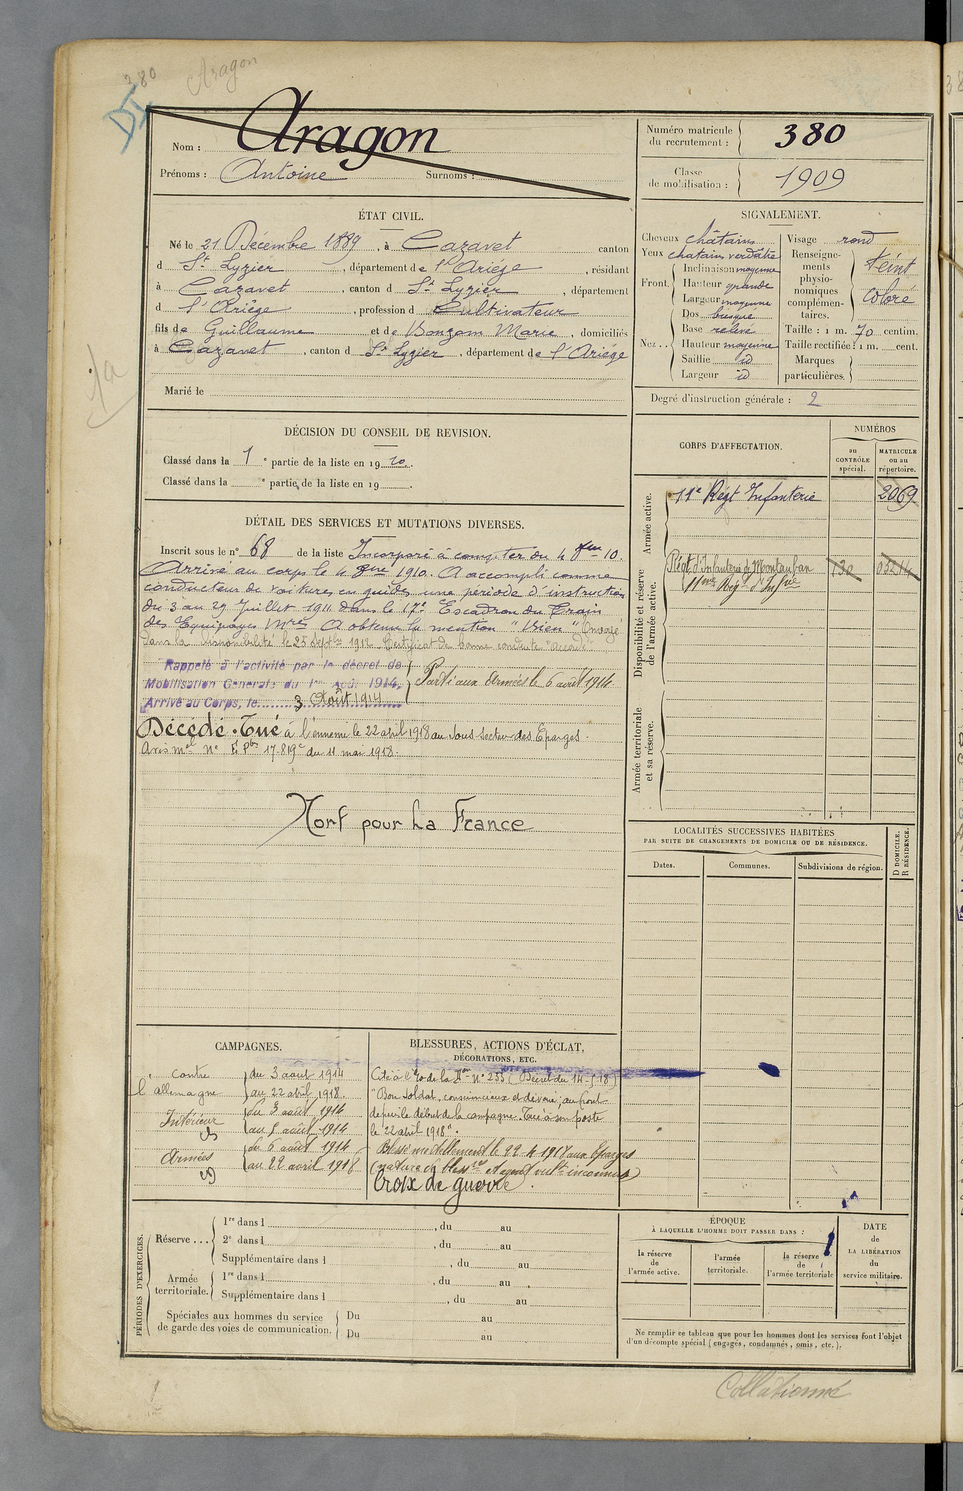 380 Aragon
DI
Nom : Aragon
Prénoms : Antoine Surnoms :
Numéro matricule du recrutement : 380
Classe de mobilisation : 1909
ÉTAT CIVIL.
Né le 21 Décembre 1889, à Cazavet canton
d St Lyzier, département de l'Ariége, résidant
à Cazavet, canton d St Lyzier, département
d l'Ariège, profession d Cultivateur
fils de Guillaume et de Bonzom Marie, domiciliés
à Cazavet, canton d St Lyzier, département de l'Ariége
Marié le
SIGNALEMENT.
Cheveux châtains
Yeux chatain verdâtre
Front. Inclinaison moyenne
Hauteur grande
Largeur moyenne
Nez . . Dos busqué
Base relevé
Hauteur moyenne
Saillie id
Largeur id
Visage rond
Renseignements physionomiques complémentaires. teint coloré
Taille : 1 m. 70 centim.
Taille rectifiée : 1 m. cent.
Marques particulières.
Degré d'instruction générale : 2
DÉCISION DU CONSEIL DE REVISION.
Classé dans la 1e partie de la liste en 1910.
Classé dans la e partie de la liste en 19 .
CORPS D'AFFECTATION.
NUMÉROS
au CONTRÔLE spécial.
MATRICULE ou au répertoire.
Armée active.
11e Régt Infanterie 2069
Disponibilité et réserve de l'armée active.
Régt d'Infanterie de Montauban 130
11me Régt d'Infie
Armée territoriale et sa réserve.
DÉTAIL DES SERVICES ET MUTATIONS DIVERSES.
Inscrit sous le n° 68 de la liste Incorporé à compter du 4 8bre 10.
Arrivé au corps le 4 8bre 1910. A accompli comme
conducteur de voitures en guides une période d'instruction
du 3 au 29 Juillet 1911 dans le 17e Escadron du Train
des Equipages Mres A obtenu la mention "Bien" Envoyé
dans la disponibilité le 25 Septbre 1912. Certificat de bonne conduite "accordé"
Rappelé à l'activité par le décret de
Mobilisation Générale du 1er Août 1914.
Arrivé au Corps, le 3 Août 1914
Parti aux Armées le 6 août 1914
Décédé. Tué à l'ennemi le 22 avril 1918 au sous secteur des Eparges.
Avis mel N° 17.819 du 11 mai 1918.
Mort pour La France
LOCALITÉS SUCCESSIVES HABITÉES
PAR SUITE DE CHANGEMENTS DE DOMICILE OU DE RÉSIDENCE.
Dates. Communes. Subdivisions de région.
D DOMICILE. R RÉSIDENCE.
CAMPAGNES.
contre l'allemagne du 3 aout 1914
au 22 avril 1918.
Intérieur du 3 août 1914
au 5 août 1914
Armées du 6 août 1914
au 22 avril 1918
BLESSURES, ACTIONS D'ÉCLAT,
DÉCORATIONS, ETC.
Cité à l'O de la Don N° 255 (Décret du 14-5-18)
"Bon soldat, consciencieux et dévoué, au front
depuis le début de la campagne. Tué à son poste
le 22 avril 1918".
Blessé mortellement le 22.4.1918 aux Eparges
(nature de blessre et agent vulnt inconnus)
Croix de guerre.
PÉRIODES D'EXERCICES.
Réserve . . . 1re dans l , du au
2e dans l , du au
Supplémentaire dans l , du au
Armée territoriale. 1re dans l , du au
Supplémentaire dans l , du au
Spéciales aux hommes du service de garde des voies de communication. Du au
Du au
ÉPOQUE
À LAQUELLE L'HOMME DOIT PASSER DANS :
la réserve de l'armée active.
l'armée territoriale.
la réserve de l'armée territoriale
DATE de LA LIBÉRATION du service militaire.
Ne remplir ce tableau que pour les hommes dont les services font l'objet
d'un décompte spécial (engagés, condamnés, omis, etc.).
Collationné